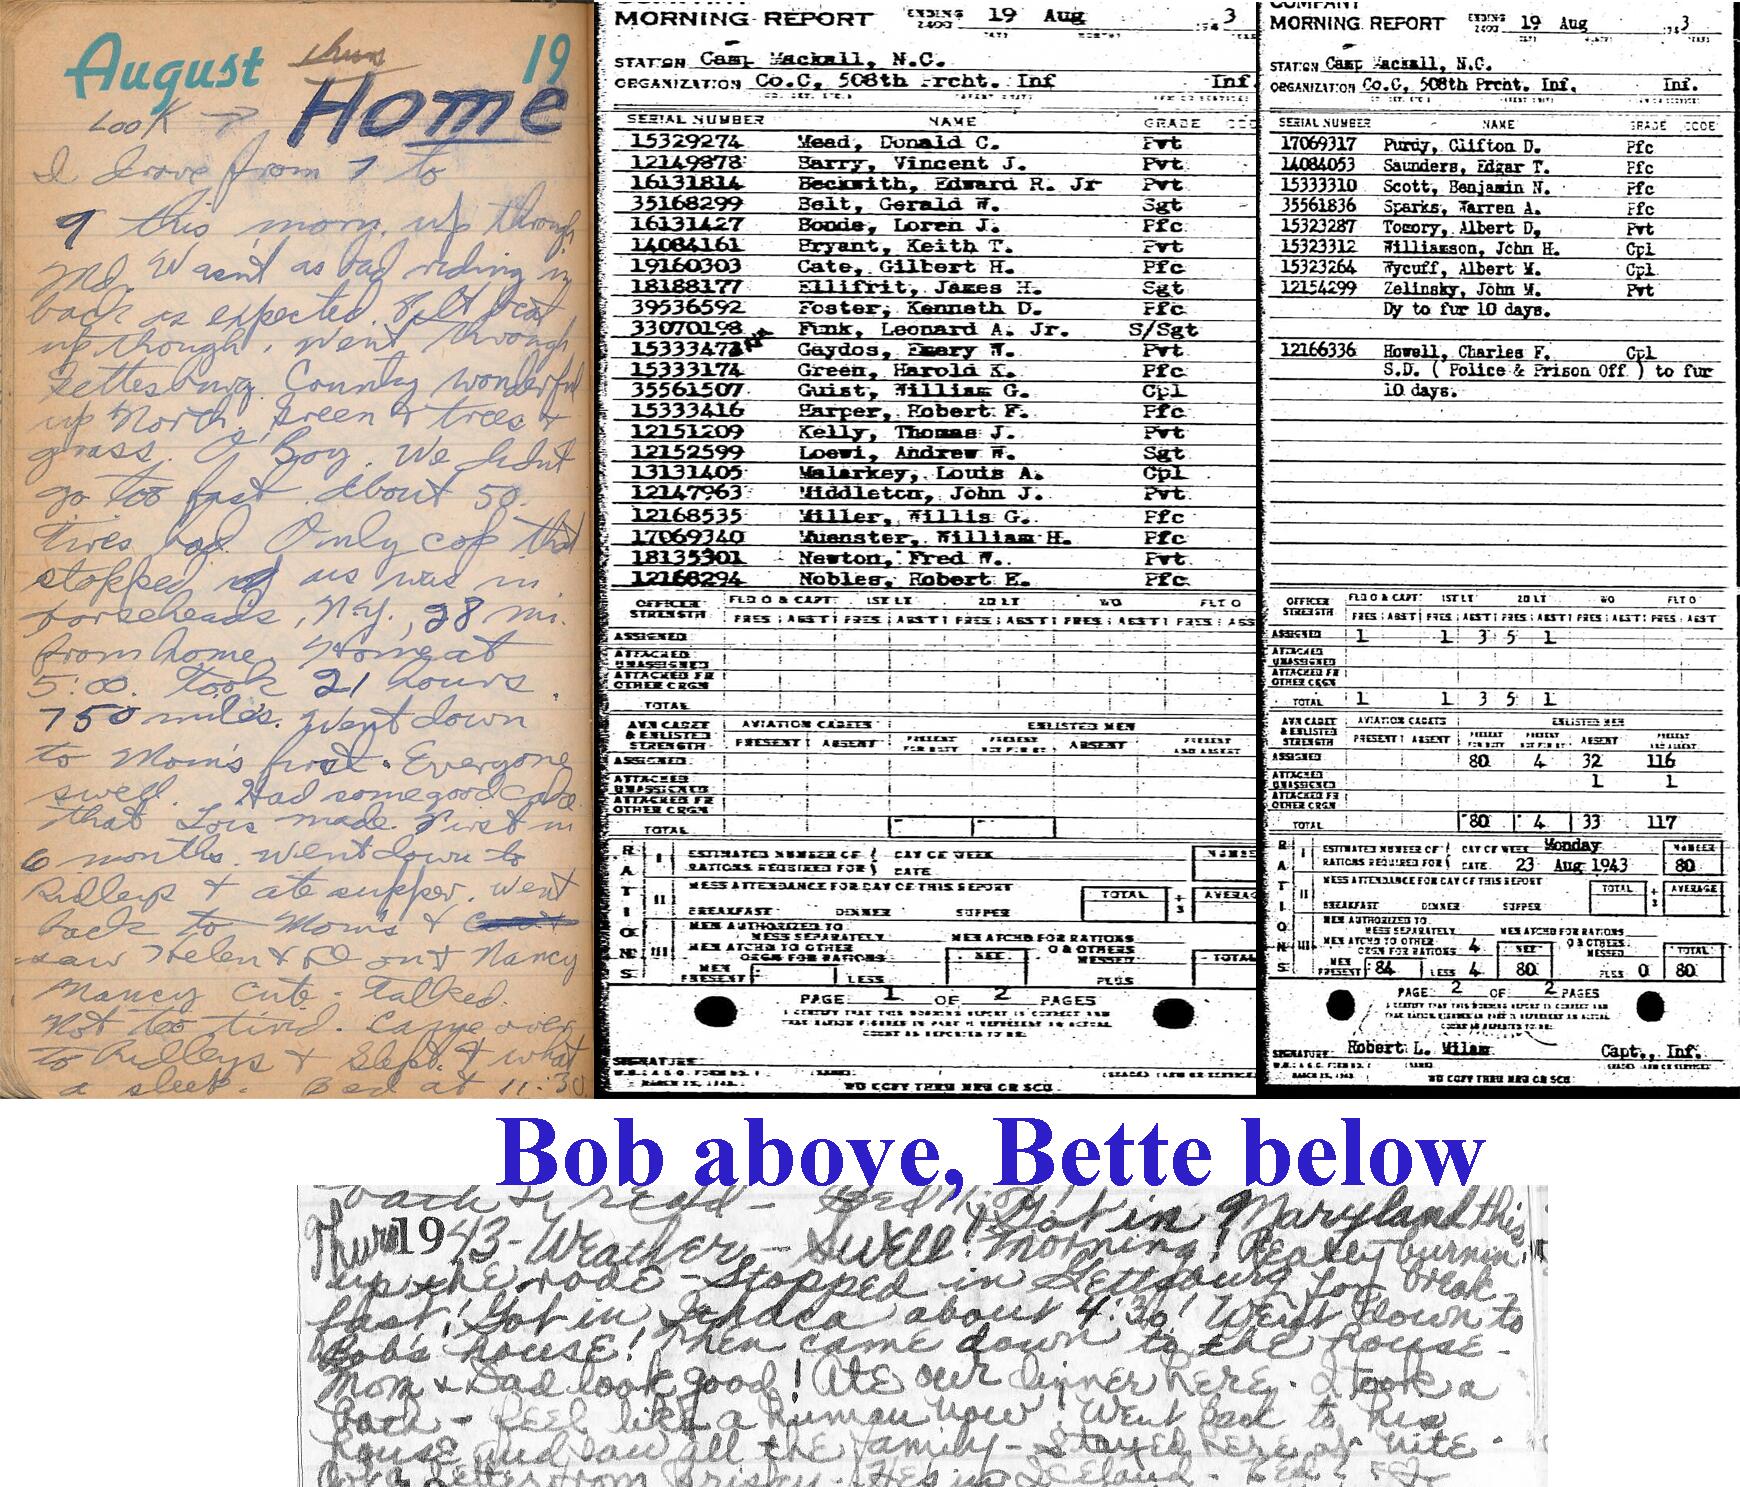 August 19
Thurs
Look → Home
I drove from 7 to
9 this morn. up through
Md. Wasn't as bad riding in
back as expected. Felt beat
up though. Went through
Gettesburg. Country wonderful
up North. Green & trees &
grass. O Boy. We didnt
go too fast. About 50.
Tires bad. Only cop that
stopped us was in
Horseheads, N.Y., 28 mi.
from home. Home at
5:00. Took 21 hours.
750 miles. Went down
to Mom's first. Everyone
swell. Had some good cake
that Lois made. First in
6 months. Went down to
Ridleys & ate supper. Went
back to Mom's &
saw Helen & Don & Nancy
Nancy cute. Talked.
Not too tired. Came over
to Ridleys & slept. & what
a sleep. Bed at 11:30
COMPANY
MORNING REPORT ENDING 2400 19 Aug 1943
STATION Camp Mackall, N.C.
ORGANIZATION Co.C, 508th Prcht. Inf Inf
SERIAL NUMBER NAME GRADE CODE
15329274 Mead, Donald C. Pvt
12149878 Barry, Vincent J. Pvt
16131814 Beckwith, Edward R. Jr Pvt
35168299 Belt, Gerald W. Sgt
16131427 Bonde, Loren J. Pfc
14084161 Bryant, Keith T. Pvt
19160303 Cate, Gilbert H. Pfc
18188177 Ellifrit, James H. Sgt
39536592 Foster, Kenneth D. Pfc
33070198 Funk, Leonard A. Jr. S/Sgt
Gaydos, Emery W. Pvt
15333174 Green, Harold K. Pfc
35561507 Guist, William G. Cpl
15333416 Harper, Robert F. Pfc
12151209 Kelly, Thomas J. Pvt
12152599 Loewi, Andrew W. Sgt
13131405 Malarkey, Louis A. Cpl
12147963 Middleton, John J. Pvt
12168535 Miller, Willis G. Pfc
17069340 Muenster, William H. Pfc
18135301 Newton, Fred W. Pvt
12168294 Nobles, Robert E. Pfc
OFFICER STRENGTH FLD O & CAPT 1ST LT 2D LT WO FLT O
PRES ABST PRES ABST PRES ABST PRES ABST PRES ABS
ASSIGNED
ATTACHED UNASSIGNED
ATTACHED FR OTHER ORGN
TOTAL
AVN CADET & ENLISTED STRENGTH AVIATION CADETS ENLISTED MEN
PRESENT ABSENT PRESENT FOR DUTY PRESENT NOT FOR DUTY ABSENT PRESENT AND ABSENT
ASSIGNED
ATTACHED UNASSIGNED
ATTACHED FR OTHER ORGN
TOTAL
RATIONS
I ESTIMATED NUMBER OF RATIONS REQUIRED FOR DAY OF WEEK DATE NUMBE
II MESS ATTENDANCE FOR DAY OF THIS REPORT TOTAL ÷ 3 AVERAG
BREAKFAST DINNER SUPPER
III MEN AUTHORIZED TO MESS SEPARATELY
MEN ATCHD TO OTHER ORGN FOR RATIONS NET MEN ATCHD FOR RATIONS & OTHERS MESSED TOTAL
MEN PRESENT LESS PLUS
PAGE 1 OF 2 PAGES
I CERTIFY THAT THIS MORNING REPORT IS CORRECT AND
THAT RATION FIGURES IN PART III REPRESENT AN ACTUAL
COUNT AS REPORTED TO ME:
SIGNATURE
NO COPY THRU MRU OR SCU
COMPANY
MORNING REPORT ENDING 2400 19 Aug 1943
STATION Camp Mackall, N.C.
ORGANIZATION Co.C, 508th Prcht. Inf. Inf.
SERIAL NUMBER NAME GRADE CODE
17069317 Purdy, Clifton D. Pfc
14084053 Saunders, Edgar T. Pfc
15333310 Scott, Benjamin N. Pfc
35561836 Sparks, Warren A. Pfc
15323287 Tomory, Albert D, Pvt
15323312 Williamson, John H. Cpl
15323264 Wycuff, Albert M. Cpl
12154299 Zelinsky, John M. Pvt
Dy to fur 10 days.
12166336 Howell, Charles F. Cpl
S.D. ( Police & Prison Off ) to fur
10 days.
OFFICER STRENGTH FLD O & CAPT 1ST LT 2D LT WO FLT O
PRES ABST PRES ABST PRES ABST PRES ABST PRES ABST
ASSIGNED 1 1 3 5 1
ATTACHED UNASSIGNED
ATTACHED FR OTHER ORGN
TOTAL 1 1 3 5 1
AVN CADET & ENLISTED STRENGTH AVIATION CADETS ENLISTED MEN
PRESENT ABSENT PRESENT FOR DUTY PRESENT NOT FOR DUTY ABSENT PRESENT AND ABSENT
ASSIGNED 80 4 32 116
ATTACHED UNASSIGNED 1 1
ATTACHED FR OTHER ORGN
TOTAL 80 4 33 117
RATIONS
I ESTIMATED NUMBER OF RATIONS REQUIRED FOR DAY OF WEEK Monday DATE 23 Aug 1943 NUMBER 80
II MESS ATTENDANCE FOR DAY OF THIS REPORT TOTAL ÷ 3 AVERAGE
BREAKFAST DINNER SUPPER
III MEN AUTHORIZED TO MESS SEPARATELY
MEN ATCHD TO OTHER ORGN FOR RATIONS 4 NET MEN ATCHD FOR RATIONS & OTHERS MESSED TOTAL
MEN PRESENT 84 LESS 4 80 PLUS 0 80
PAGE 2 OF 2 PAGES
I CERTIFY THAT THIS MORNING REPORT IS CORRECT AND
THAT RATION FIGURES IN PART III REPRESENT AN ACTUAL
COUNT AS REPORTED TO ME:
SIGNATURE Robert L. Milam Capt., Inf.
NO COPY THRU MRU OR SCU
Bob above, Bette below
bath & read - Bed
Thurs 1943 - Weather - Swell! Got in Maryland this
morning! Really burnin
up the rode - Stopped in Gettsburg for break
fast! Got in Ithaca about 4:30! Went down to
Bob's house! Then came down to the house -
Mom & Dad look good! Ate our dinner here. I took a
bath - feel like a human now! Went back to his
house and saw all the family - Stayed here at nite.
Got a letter from - He's in Iceland - Bed